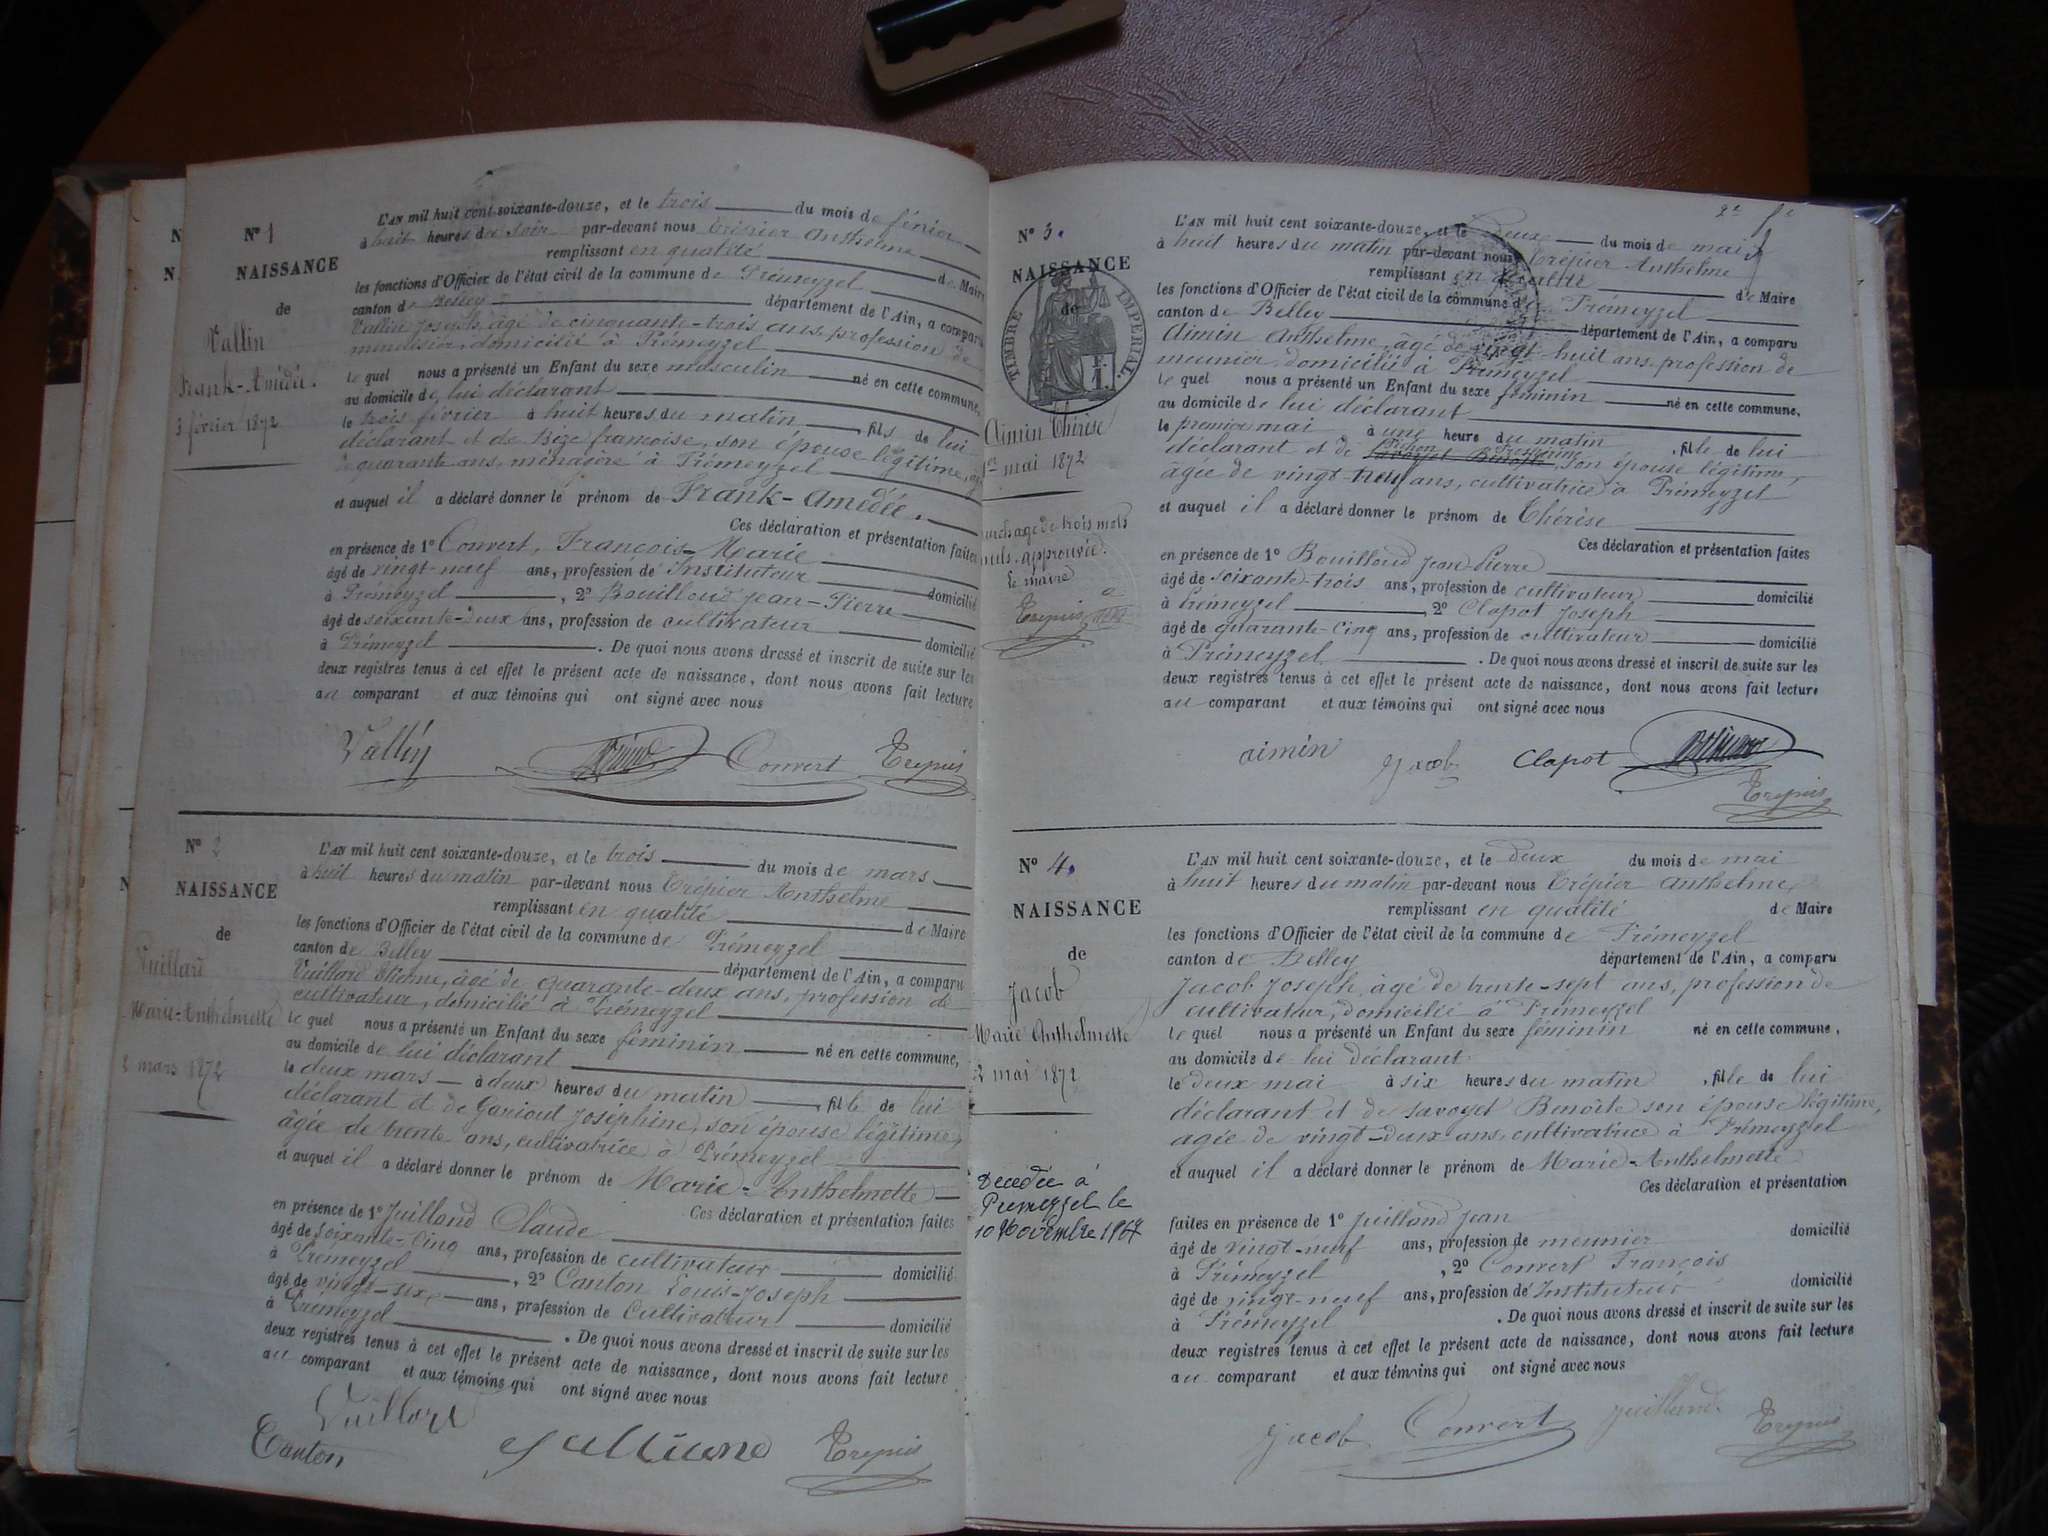 N° 1
NAISSANCE
de
Vallin
Frank-Amédée.
3 février 1872
L'AN mil huit cent soixante-douze, et le trois du mois de février
à huit heures du soir par-devant nous Trépier Anthelme
remplissant en qualité de Maire
les fonctions d'Officier de l'état civil de la commune de Prémeyzel
canton de Belley département de l'Ain, a comparu
Vallin Joseph, âgé de cinquante-trois ans, profession de
menuisier, domicilié à Prémeyzel
le quel nous a présenté un Enfant du sexe masculin né en cette commune,
au domicile de lui déclarant
le trois février à huit heures du matin, fils de lui
déclarant et de Bize françoise, son épouse légitime,
quarante ans, ménagère à Prémeyzel
et auquel il a déclaré donner le prénom de Frank-Amédée.
Ces déclaration et présentation faites
en présence de 1° Convert, François-Marie
âgé de vingt-neuf ans, profession de Instituteur domicilié
à Prémeyzel, 2° Bouilloud Jean-Pierre
âgé de soixante-deux ans, profession de cultivateur domicilié
à Prémeyzel. De quoi nous avons dressé et inscrit de suite sur les
deux registres tenus à cet effet le présent acte de naissance, dont nous avons fait lecture
au comparant et aux témoins qui ont signé avec nous
Vallin Convert Trepier
N° 2
NAISSANCE
de
Vuillard
Marie-Anthelmette
2 mars 1872
L'AN mil huit cent soixante-douze, et le trois du mois de mars
à huit heures du matin par-devant nous Trépier Anthelme
remplissant en qualité de Maire
les fonctions d'Officier de l'état civil de la commune de Prémeyzel
canton de Belley département de l'Ain, a comparu
Vuillard âgé de quarante-deux ans, profession de
cultivateur, domicilié à Prémeyzel
le quel nous a présenté un Enfant du sexe féminin né en cette commune,
au domicile de lui déclarant
le deux mars à deux heures du matin, fille de lui
déclarant et de Joséphine, son épouse légitime,
âgée de trente ans, cultivatrice à Prémeyzel
et auquel il a déclaré donner le prénom de Marie-Anthelmette
Ces déclaration et présentation faites
en présence de 1° Juilland Claude
âgé de soixante-cinq ans, profession de cultivateur domicilié
à Prémeyzel, 2° Canton Louis-Joseph
âgé de vingt-six ans, profession de Cultivateur domicilié
à Prémeyzel. De quoi nous avons dressé et inscrit de suite sur les
deux registres tenus à cet effet le présent acte de naissance, dont nous avons fait lecture
au comparant et aux témoins qui ont signé avec nous
Vuillard
Canton Trepier
N° 3.
NAISSANCE
de
TIMBRE IMPERIAL
Aimin Thérèse
1er mai 1872
trois mots
nuls, approuvée.
Le maire
Trepier
L'AN mil huit cent soixante-douze, et le deux du mois de mai
à huit heures du matin par-devant nous Trépier Anthelme
remplissant en qualité de Maire
les fonctions d'Officier de l'état civil de la commune de Prémeyzel
canton de Belley département de l'Ain, a comparu
Aimin Anthelme, âgé de vingt-huit ans, profession de
meunier, domicilié à Prémeyzel
le quel nous a présenté un Enfant du sexe féminin né en cette commune,
au domicile de lui déclarant
le premier mai à une heure du matin, fille de lui
déclarant et de son épouse légitime,
âgée de vingt-neuf ans, cultivatrice à Prémeyzel
et auquel il a déclaré donner le prénom de Thérèse
Ces déclaration et présentation faites
en présence de 1° Bouilloud Jean-Pierre
âgé de soixante-trois ans, profession de cultivateur domicilié
à Prémeyzel, 2° Clapot Joseph
âgé de quarante-cinq ans, profession de cultivateur domicilié
à Prémeyzel. De quoi nous avons dressé et inscrit de suite sur les
deux registres tenus à cet effet le présent acte de naissance, dont nous avons fait lecture
au comparant et aux témoins qui ont signé avec nous
aimin Jacob Clapot
Trepier
N° 4.
NAISSANCE
de
Jacob
Marie Anthelmette
2 mai 1872
Décédée à
Premeyzel le
10 Novembre
L'AN mil huit cent soixante-douze, et le deux du mois de mai
à huit heures du matin par-devant nous Trépier Anthelme
remplissant en qualité de Maire
les fonctions d'Officier de l'état civil de la commune de Prémeyzel
canton de Belley département de l'Ain, a comparu
Jacob Joseph, âgé de trente-sept ans, profession de
cultivateur, domicilié à Prémeyzel
le quel nous a présenté un Enfant du sexe féminin né en cette commune,
au domicile de lui déclarant
le deux mai à six heures du matin, fille de lui
déclarant et de Savoyet Benoîte son épouse légitime,
âgée de vingt-deux ans, cultivatrice à Prémeyzel
et auquel il a déclaré donner le prénom de Marie-Anthelmette
Ces déclaration et présentation
faites en présence de 1° Juilland Jean
âgé de vingt-neuf ans, profession de meunier domicilié
à Prémeyzel, 2° Convert François
âgé de vingt-neuf ans, profession de Instituteur domicilié
à Prémeyzel. De quoi nous avons dressé et inscrit de suite sur les
deux registres tenus à cet effet le présent acte de naissance, dont nous avons fait lecture
au comparant et aux témoins qui ont signé avec nous
Jacob Convert Juilland Trepier